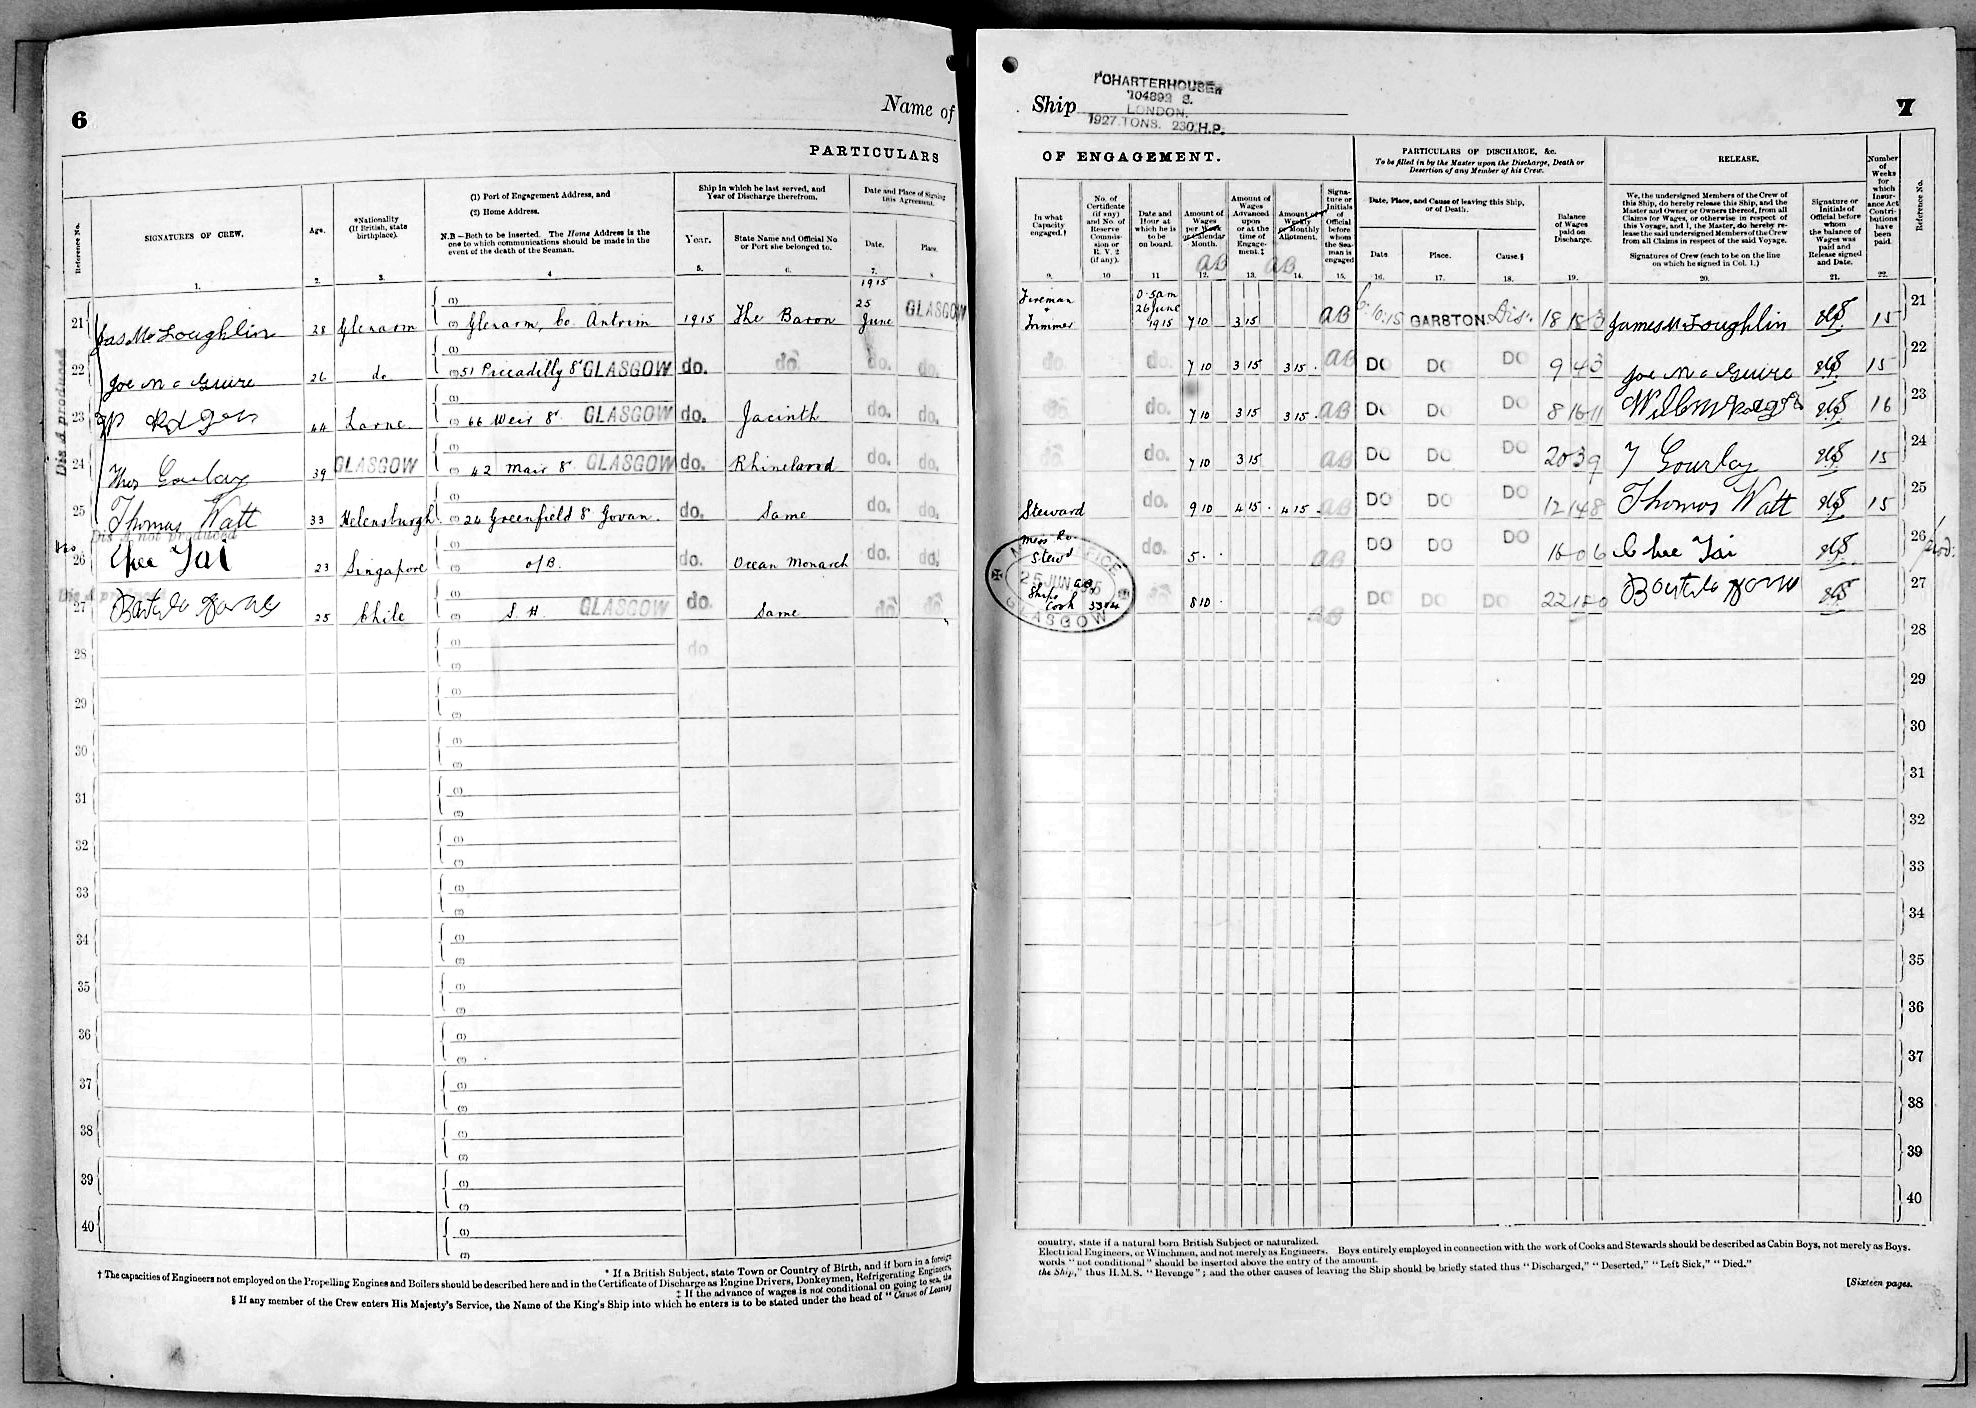 6
Name of
PARTICULARS
Reference No.
SIGNATURES OF CREW.
Age.
*Nationality
(If British, state
birthplace).
(1) Port of Engagement Address, and
(2) Home Address.
N.B—Both to be inserted. The Home Address is the
one to which communications should be made in the
event of the death of the Seaman.
Ship in which he last served, and
Year of Discharge therefrom.
Year.
State Name and Official No
or Port she belonged to.
Date and Place of Signing
this Agreement.
Date.
Place.
1. 2. 3. 4 5. 6. 7. 8
1915
21 Jas McLoughlin 28 Glenarm (1) (2) Glenarm, Co. Antrim 1915 The Baron 25 June GLASGOW
22 Joe McGuire 26 do (1) (2) 51 Piccadilly St GLASGOW do. do. do. do.
23 44 Larne (1) (2) 66 Weir St GLASGOW do. Jacinth do. do.
24 Thos Gourlay 39 GLASGOW (1) (2) 42 Mair St GLASGOW do. Rhineland do. do.
25 Thomas Watt 33 Helensburgh (1) (2) 24 Greenfield St Govan. do. Same do. do.
Dis A produced
Dis A not produced
26 Chee Tai 23 Singapore (1) (2) o/B. do. Ocean Monarch do. do.
27 25 Chile (1) (2) S. H GLASGOW do. Same do do
28 (1) (2) do
29 (1) (2)
30 (1) (2)
31 (1) (2)
32 (1) (2)
33 (1) (2)
34 (1) (2)
35 (1) (2)
36 (1) (2)
37 (1) (2)
38 (1) (2)
39 (1) (2)
40 (1) (2)
* If a British Subject, state Town or Country of Birth, and if born in a foreign
† The capacities of Engineers not employed on the Propelling Engines and Boilers should be described here and in the Certificate of Discharge as Engine Drivers, Donkeymen, Refrigerating Engineers,
‡ If the advance of wages is not conditional on going to sea, the
§ If any member of the Crew enters His Majesty's Service, the Name of the King's Ship into which he enters is to be stated under the head of "Cause of Leaving
Ship
"CHARTERHOUSE"
104892 S.
LONDON.
1927 TONS. 230 H.P.
7
OF ENGAGEMENT.
PARTICULARS OF DISCHARGE, &c.
To be filled in by the Master upon the Discharge, Death or
Desertion of any Member of his Crew.
RELEASE.
In what
Capacity
engaged.†
No. of
Certificate
(if any)
and No. of
Reserve
Commis-
sion or
R. V. 2
(if any).
Date and
Hour at
which he is
to be
on board.
Amount of
Wages
per Week
or Calendar
Month.
Amount of
Wages
Advanced
upon
or at the
time of
Engage-
ment.‡
Amount of
Weekly
or Monthly
Allotment.
Signa-
ture or
Initials
of
Official
before
whom
the Sea-
man is
engaged
Date, Place, and Cause of leaving this Ship,
or of Death.
Date.
Place.
Cause.§
Balance
of Wages
paid on
Discharge.
We, the undersigned Members of the Crew of
this Ship, do hereby release this Ship, and the
Master and Owner or Owners thereof, from all
Claims for Wages, or otherwise in respect of
this Voyage, and I, the Master, do hereby re-
lease the said undersigned Members of the Crew
from all Claims in respect of the said Voyage.
Signatures of Crew (each to be on the line
on which he signed in Col. 1.)
Signature or
Initials of
Official before
whom
the balance of
Wages was
paid and
Release signed
and Date.
Number
of
Weeks
for
which
Insur-
ance Act
Contri-
butions
have
been
paid.
Reference No.
9. 10 11 12. 13. 14. 15. 16. 17. 18. 19. 20. 21. 22.
AB AB
Fireman + Trimmer 0.5am 26 June 1915 7 10 3 15 AB 6.10.15 GARSTON Dis. 18 18 3 James McLoughlin 15 21
do. do. 7 10 3 15 3 15 AB DO DO DO 9 4 3 Joe McGuire 15 22
do. do. 7 10 3 15 3 15 AB DO DO DO 8 16 11 16 23
do. do. 7 10 3 15 AB DO DO DO 20 3 9 T Gourlay 15 24
Steward do. 9 10 4 15 4 15 AB DO DO DO 12 14 8 Thomas Watt 15 25
Mess Rm Stewd do. 5 AB DO DO DO 16 0 6 Chee Tai 26
Ships Cook do. 8 10 AB DO DO DO 27
OFFICE
25 JUN
GLASGOW
28
29
30
31
32
33
34
35
36
37
38
39
40
country, state if a natural born British Subject or naturalized.
Electrical Engineers, or Winchmen, and not merely as Engineers. Boys entirely employed in connection with the work of Cooks and Stewards should be described as Cabin Boys, not merely as Boys.
words "not conditional" should be inserted above the entry of the amount.
the Ship," thus H.M.S. "Revenge"; and the other causes of leaving the Ship should be briefly stated thus "Discharged," "Deserted," "Left Sick," "Died."
[Sixteen pages.